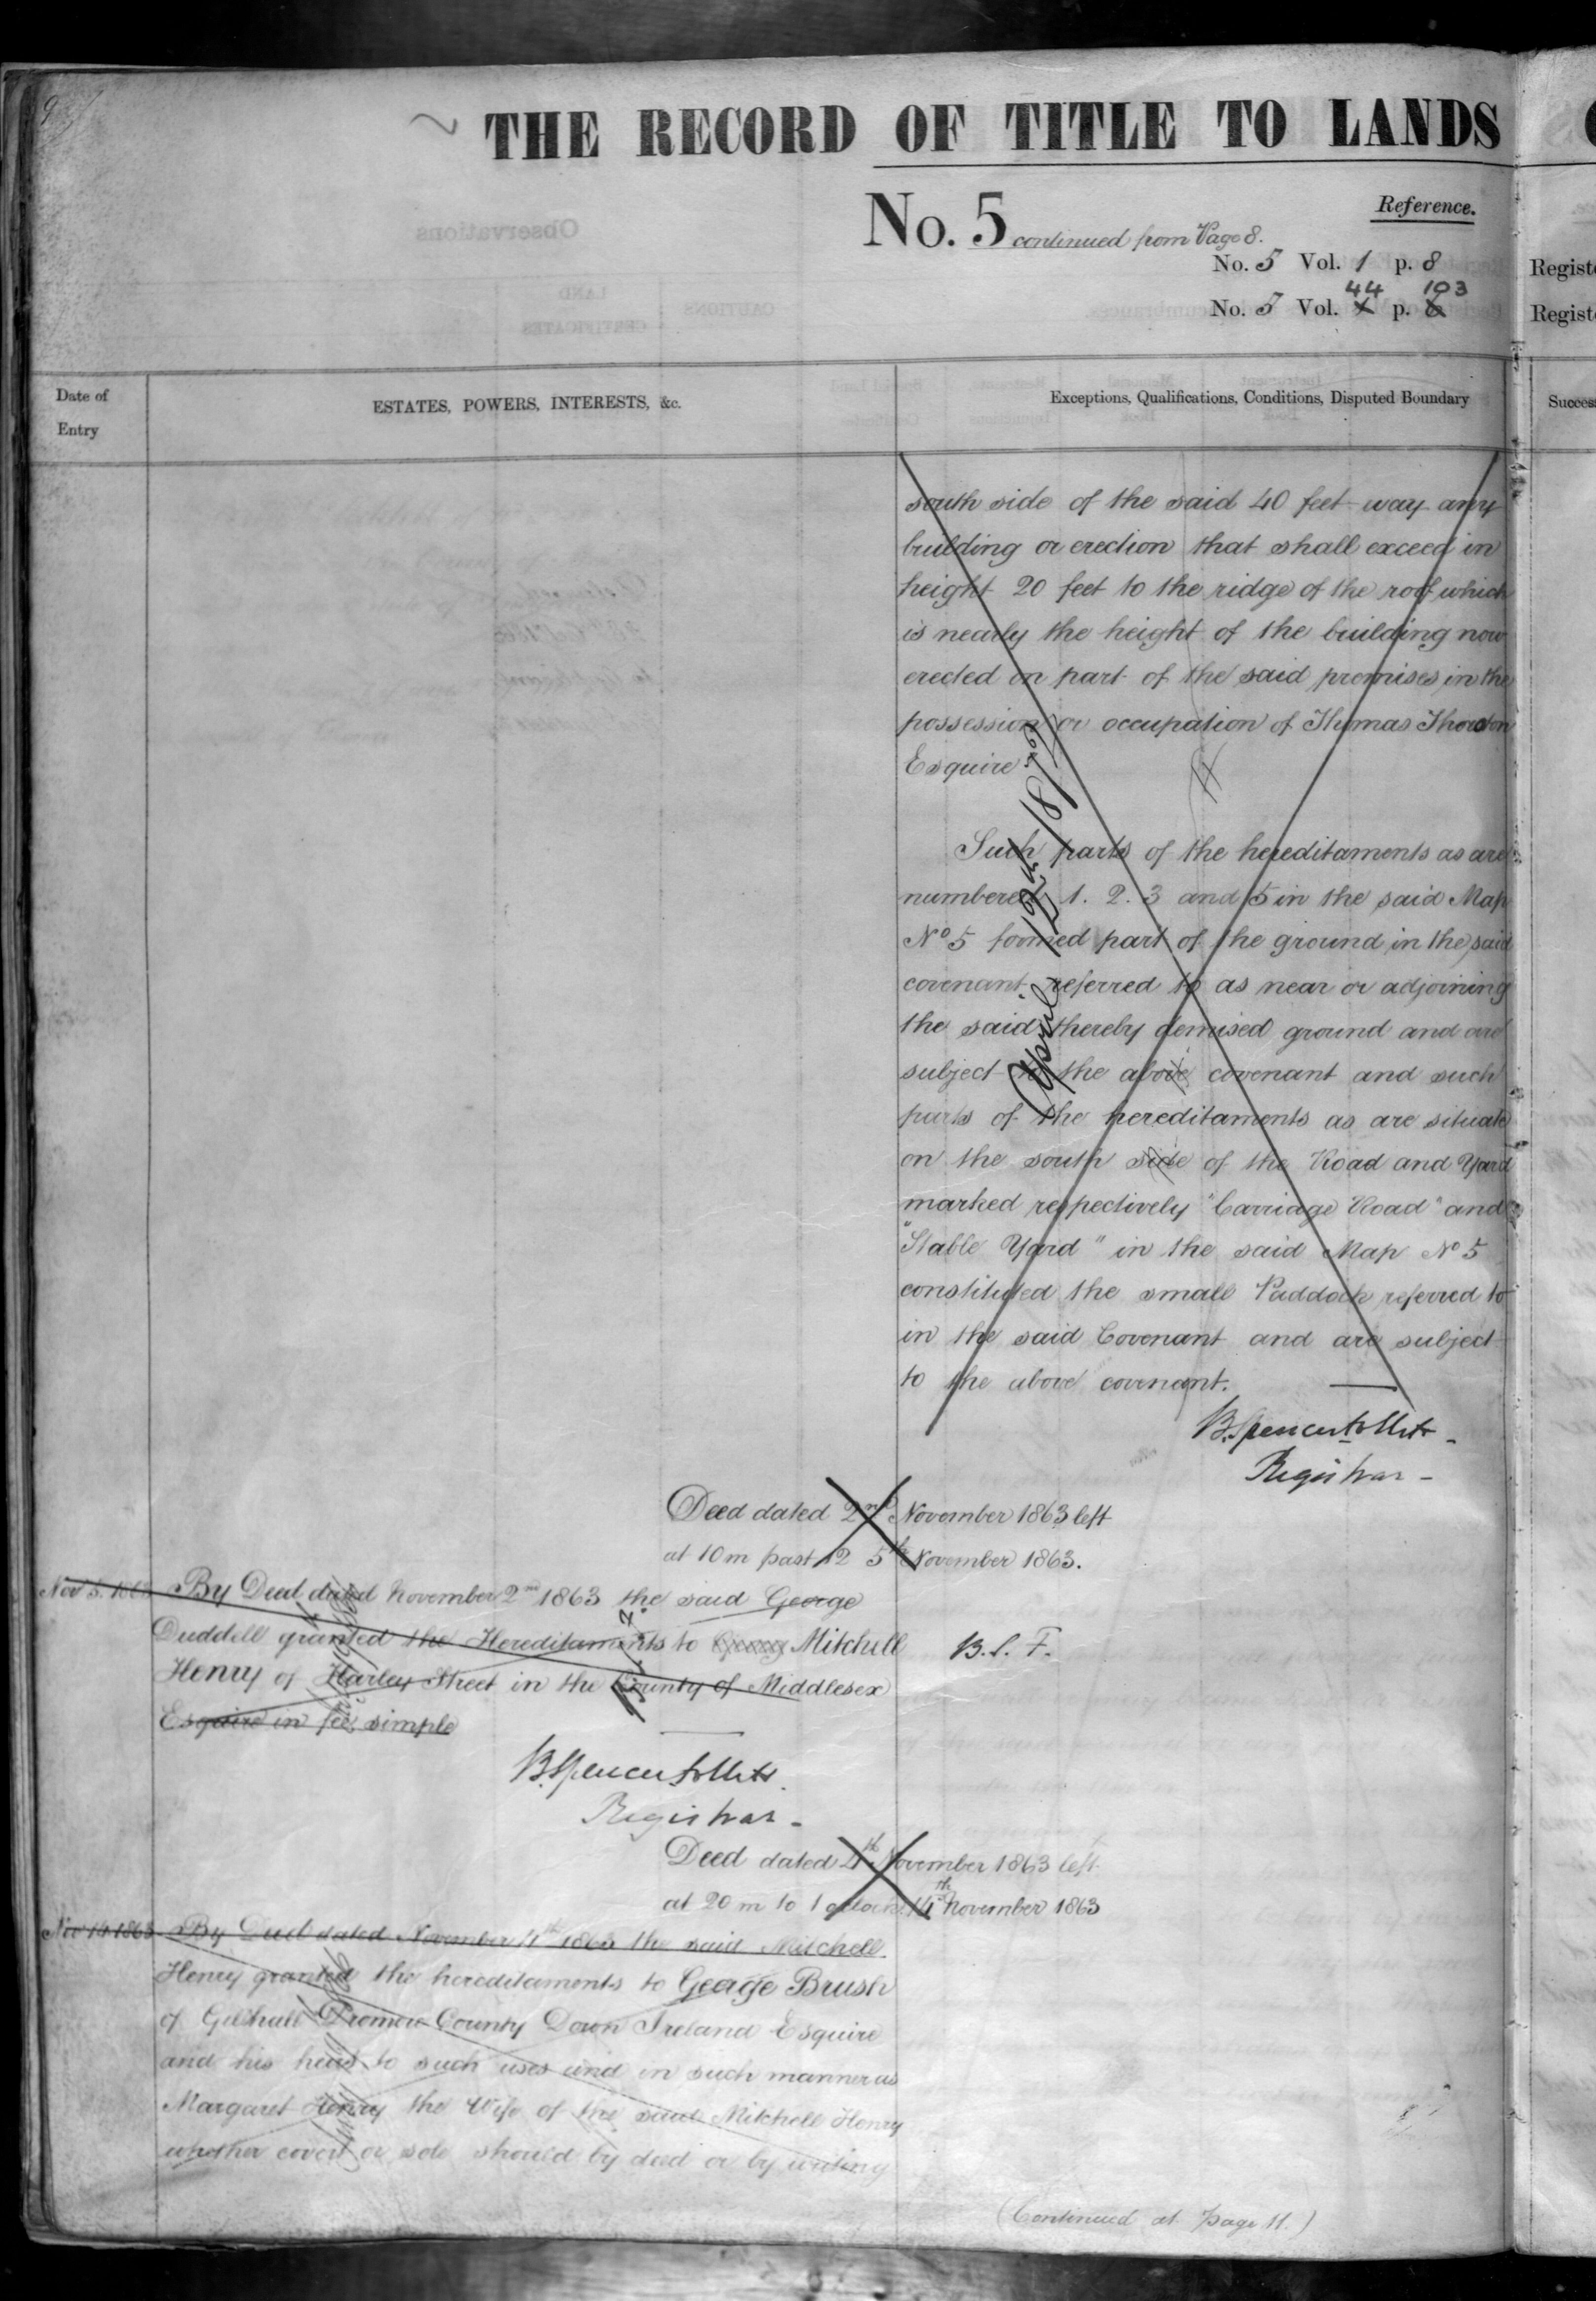 9
THE RECORD OF TITLE TO LANDS
No. 5 continued from Page 8.
Reference.
No. 5 Vol. 1 p. 8
44 103
No. 5 Vol. X p. 8
Regist
Regist
Date of Entry
ESTATES, POWERS, INTERESTS, &c.
Exceptions, Qualifications, Conditions, Disputed Boundary
Success
south side of the said 40 feet way any
building or erection that shall exceed in
height 20 feet to the ridge of the roof which
is nearly the height of the building now
erected on part of the said premises in the
possession or occupation of Thomas
Esquire
Such parts of the hereditaments as are
numbered 1. 2. 3 and 5 in the said Map
No 5 formed part of the ground in the said
covenant referred to as near or adjoining
the said thereby demised ground and are
subject to the above covenant and such
parts of the hereditaments as are situate
on the south side of the Road and Yard
marked respectively "Carriage Road" and
"Stable Yard" in the said Map No 5
constituted the small Paddock referred to
in the said Covenant and are subject
to the above covenant.
April 12th
B. Spencer Follett
Registrar
Deed dated 2nd November 1863 left
at 10 m past 12 5th November 1863.
Nov 5. 1863 By Deed dated November 2nd 1863 the said George
Duddell granted the Hereditaments to Mitchell
B.S.F.
Henry of Harley Street in the County of Middlesex
Esquire in fee simple
B. Spencer Follett
Registrar
Deed dated 4th November 1863 left
at 20 m to 1 o'clock 14th November 1863
Nov 14 1863 By Deed dated November 4th 1863 the said Mitchell
Henry granted the hereditaments to George Brush
of Gillhall Dromore County Down Ireland Esquire
and his heirs to such uses and in such manner as
Margaret Henry the Wife of the said Mitchell Henry
whether covert or sole should by deed or by writing
(Continued at page 11.)